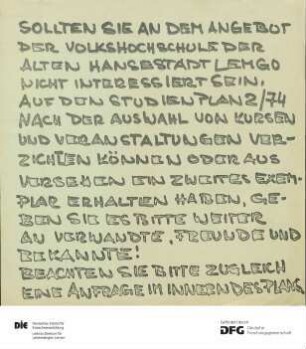 SOLLTEN SIE AN DEM ANGEBOT
DER VOLKSHOCHSCHULE DER
ALTEN HANSESTADT LEMGO
NICHT INTERESSIERT SEIN,
AUF DEN STUDIENPLAN 2/74
NACH DER AUSWAHL VON KURSEN
UND VERANSTALTUNGEN VER-
ZICHTEN KÖNNEN ODER AUS
VERSEHEN EIN ZWEITES EXEM-
PLAR ERHALTEN HABEN, GE-
BEN SIE ES BITTE WEITER
AN VERWANDTE, FREUNDE UND
BEKANNTE!
BEACHTEN SIE BITTE ZUGLEICH
EINE ANFRAGE IM INNERN DES PLANS.
DIE
DFG
Deutsche
Forschungsgemeinschaft